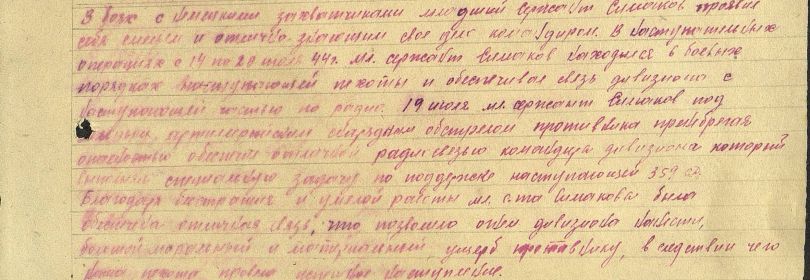 В боях с немецкими захватчиками младший сержант Симаков проявил
себя смелым и отлично знающим свое дело командиром. В наступательных
операциях с 14 по 20 июля 44 г. мл. сержант Симаков находился в боевых
порядках наступающей пехоты и обеспечивал связь дивизиона с
наступающей частью по радио. 19 июля мл. сержант Симаков под
артиллерийским снарядным обстрелом противника пренебрегая
опасностью обеспечил отличной радиосвязью командира дивизиона который
выполнял специальную задачу по поддержке наступающей 359 сд.
Благодаря бесстрашия и умелой работы мл. с-та Симакова была
обеспечена отличная связь, что позволило огнем дивизиона нанести
большой моральный и материальный ущерб противнику, в следствии чего
наша пехота наступление.